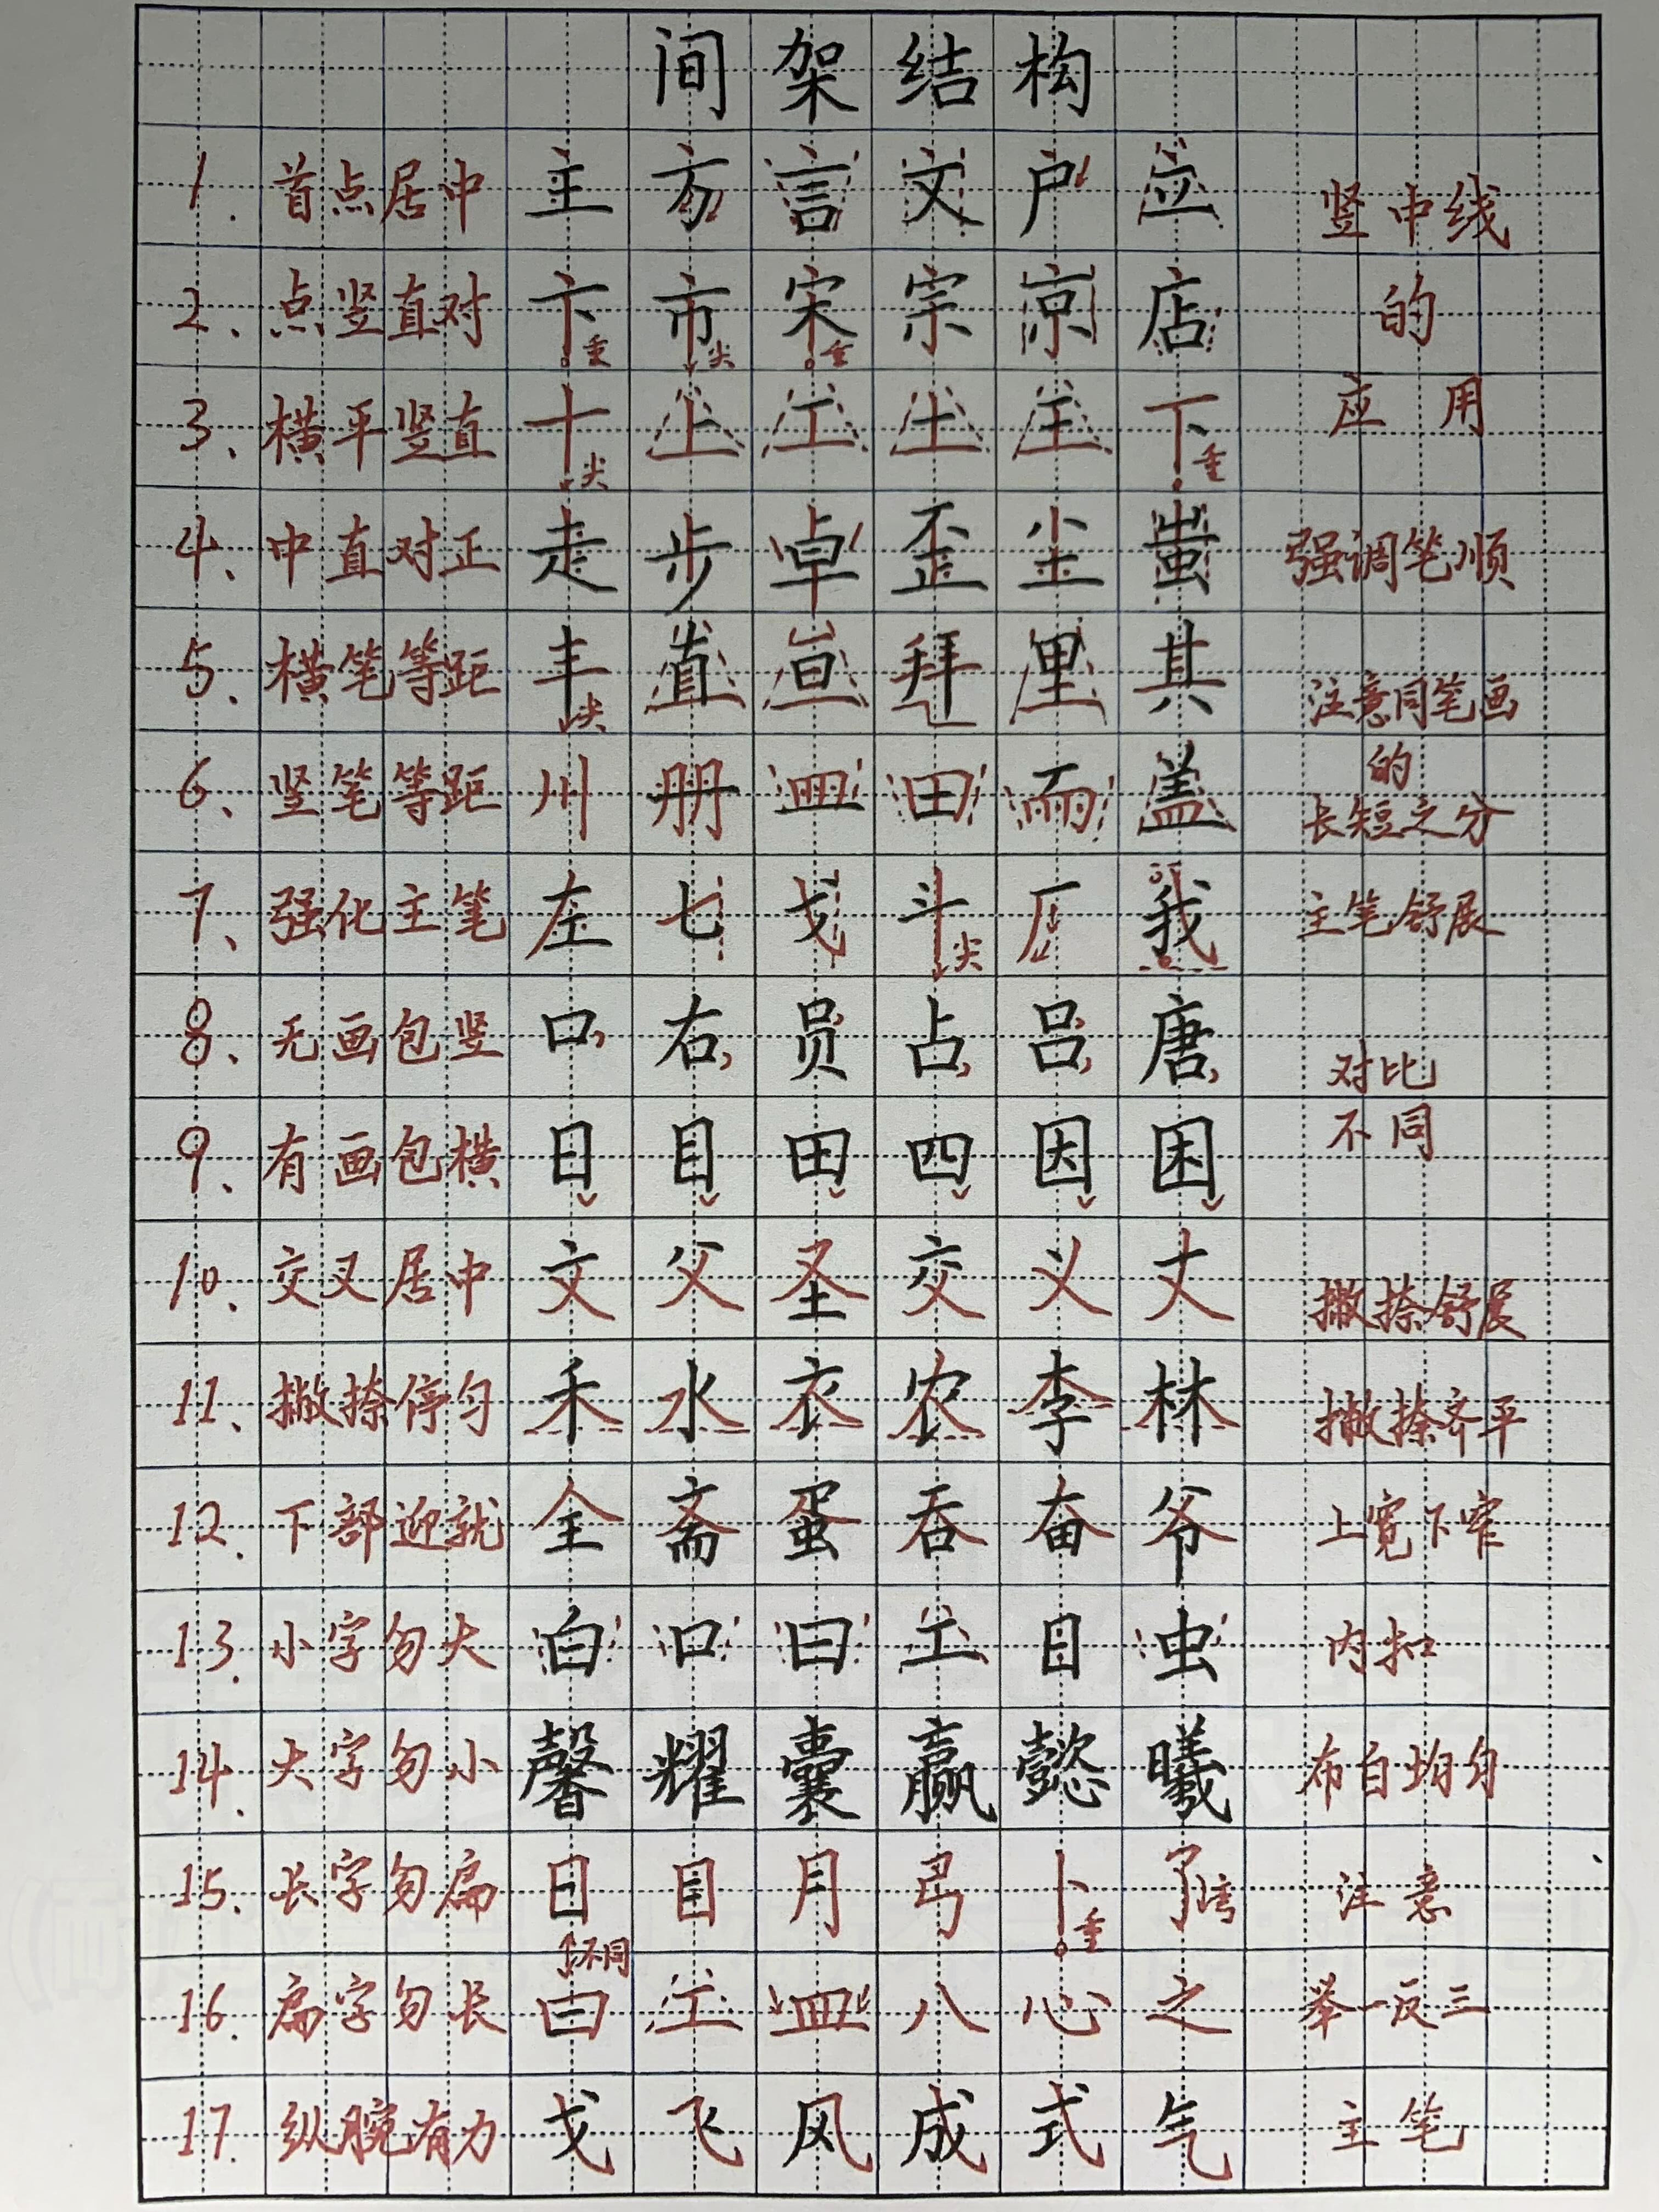 间架结构
1. 首点居中 主方言文户应 竖中线
2、点竖直对 卞市宋宗凉店 的
垂 尖 垂
3、横平竖直 十上工土主下 应用
尖 垂
4、中直对正 走步卓歪尘蚩 强调笔顺
5、横笔等距 丰直亘拜里其 注意同笔画
尖
的
6、竖笔等距 州册皿田而盖 长短之分
7、强化主笔 左七戈斗厂我 主笔舒展
尖
8、无画包竖 口右员占吕唐 对比
9、有画包横 日目田四因困 不同
10、交叉居中 文父圣交义丈 撇捺舒展
11、撇捺停匀 禾水衣农李林 撇捺齐平
12. 下部迎就 全斋蛋吞奋爷 上宽下窄
13. 小字勿大 白口曰工日虫 内扣
14. 大字勿小 馨耀囊赢懿曦 布白均匀
15. 长字勿扁 日目月弓卜了 注意
垂 弯
不同
16. 扁字勿长 曰工皿八心之 举一反三
17. 纵腕有力 戈飞风成式气 主笔